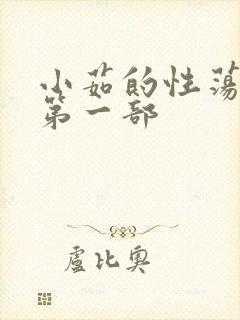 小茹的性荡
第一部
盧比奥